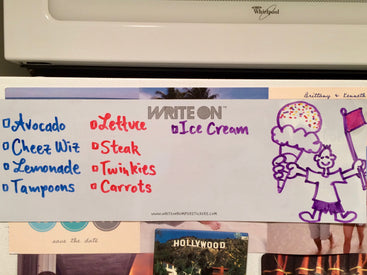 Whirlpool
Brittany & Kenneth
WRITE ON™
Avocado
Cheez Wiz
Lemonade
Tampons
Lettuce
Steak
Twinkies
Carrots
Ice Cream
WWW.WRITEONBUMPERSTICKERS.COM
save the date
HOLLYWOOD